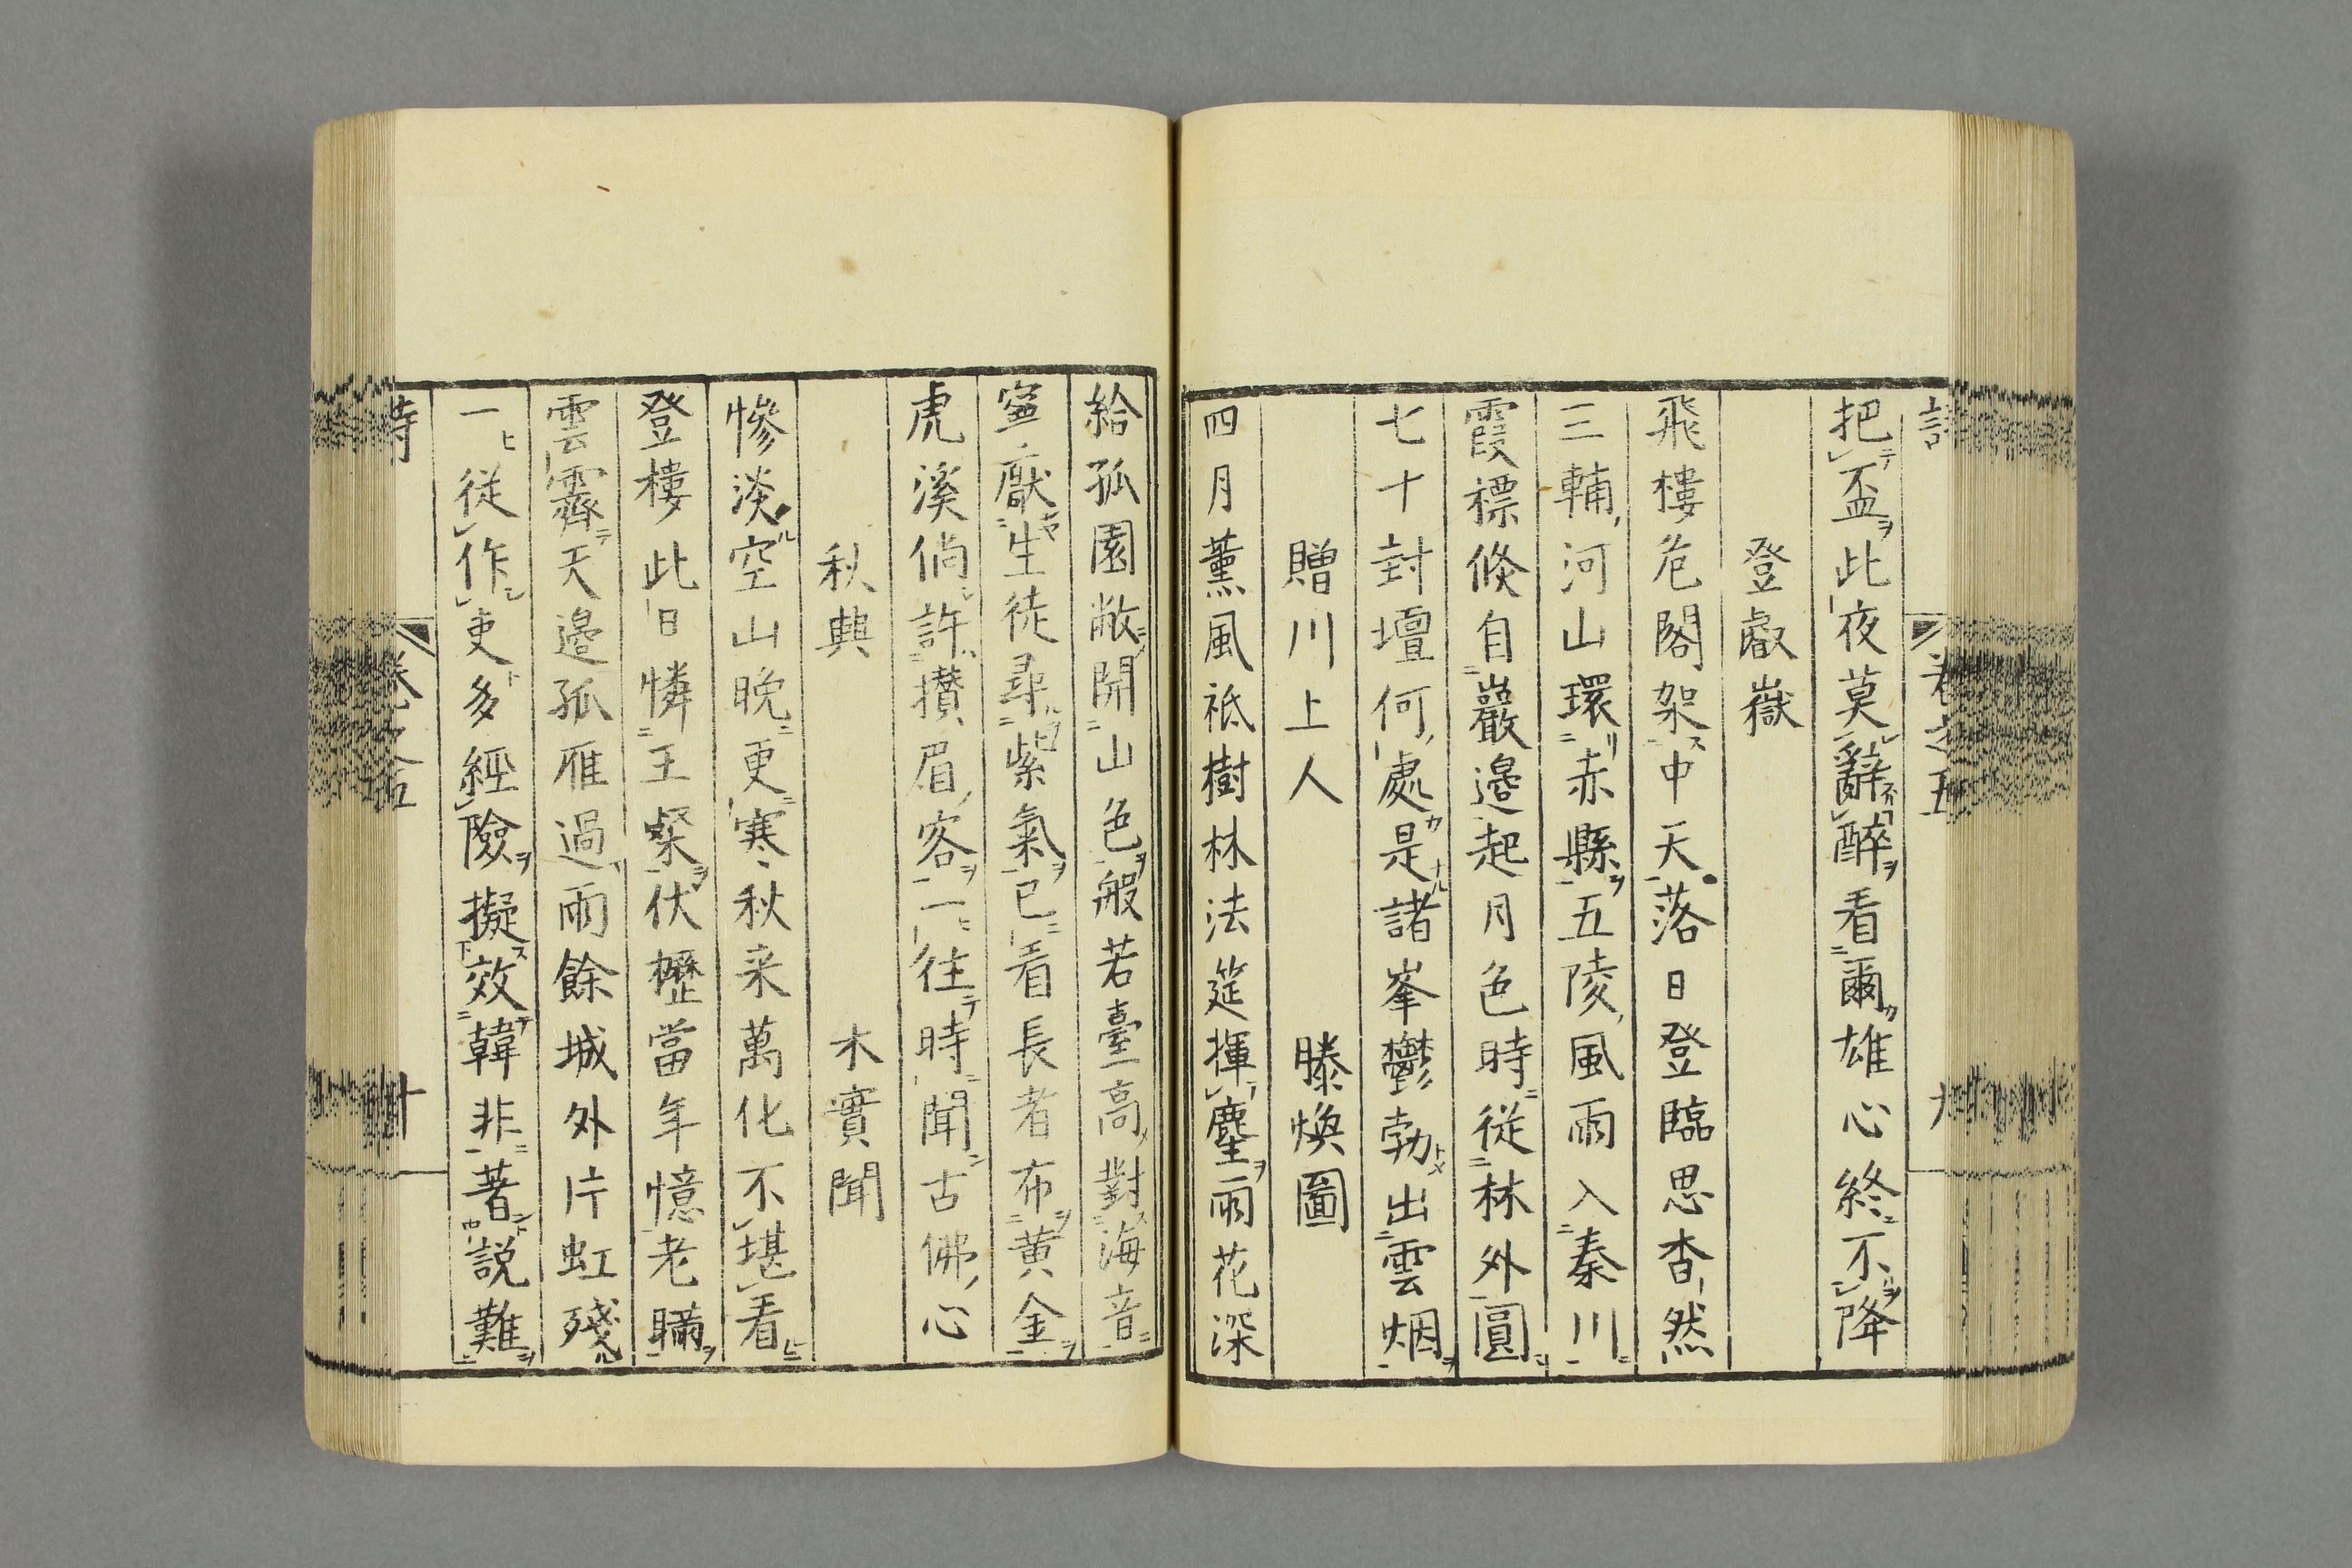 把盃此夜莫辭醉看爾雄心終不降
登叡嶽
飛樓危閣架中天落日登臨思杳然
三輔河山環赤縣五陵風雨入秦川
霞標倏自巖邊起月色時從林外圓
七十封壇何處是諸峯鬱勃出雲烟
贈川上人 滕煥圖
四月薰風祗樹林法筵揮塵雨花深
給孤園敞開山色般若臺高對海音
寧厭生徒尋紫氣已看長者布黃金
虎溪倘許攢眉客一往時聞古佛心
秋興 木實聞
慘淡空山晚更寒秋来萬化不堪看
登樓此日憐王粲伏櫪當年憶老瞞
雲霽天邊孤雁過雨餘城外片虹殘
一從作吏多經險擬效韓非著說難
卷之五
十